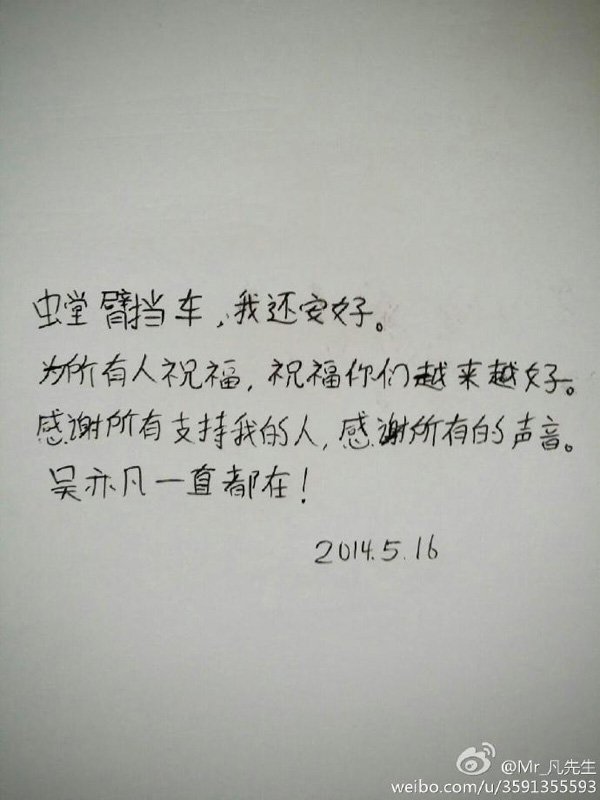 螳臂挡车,我还安好。
为所有人祝福,祝福你们越来越好。
感谢所有支持我的人,感谢所有的声音。
吴亦凡一直都在!
2014.5.16
@Mr_凡先生
weibo.com/u/3591355593